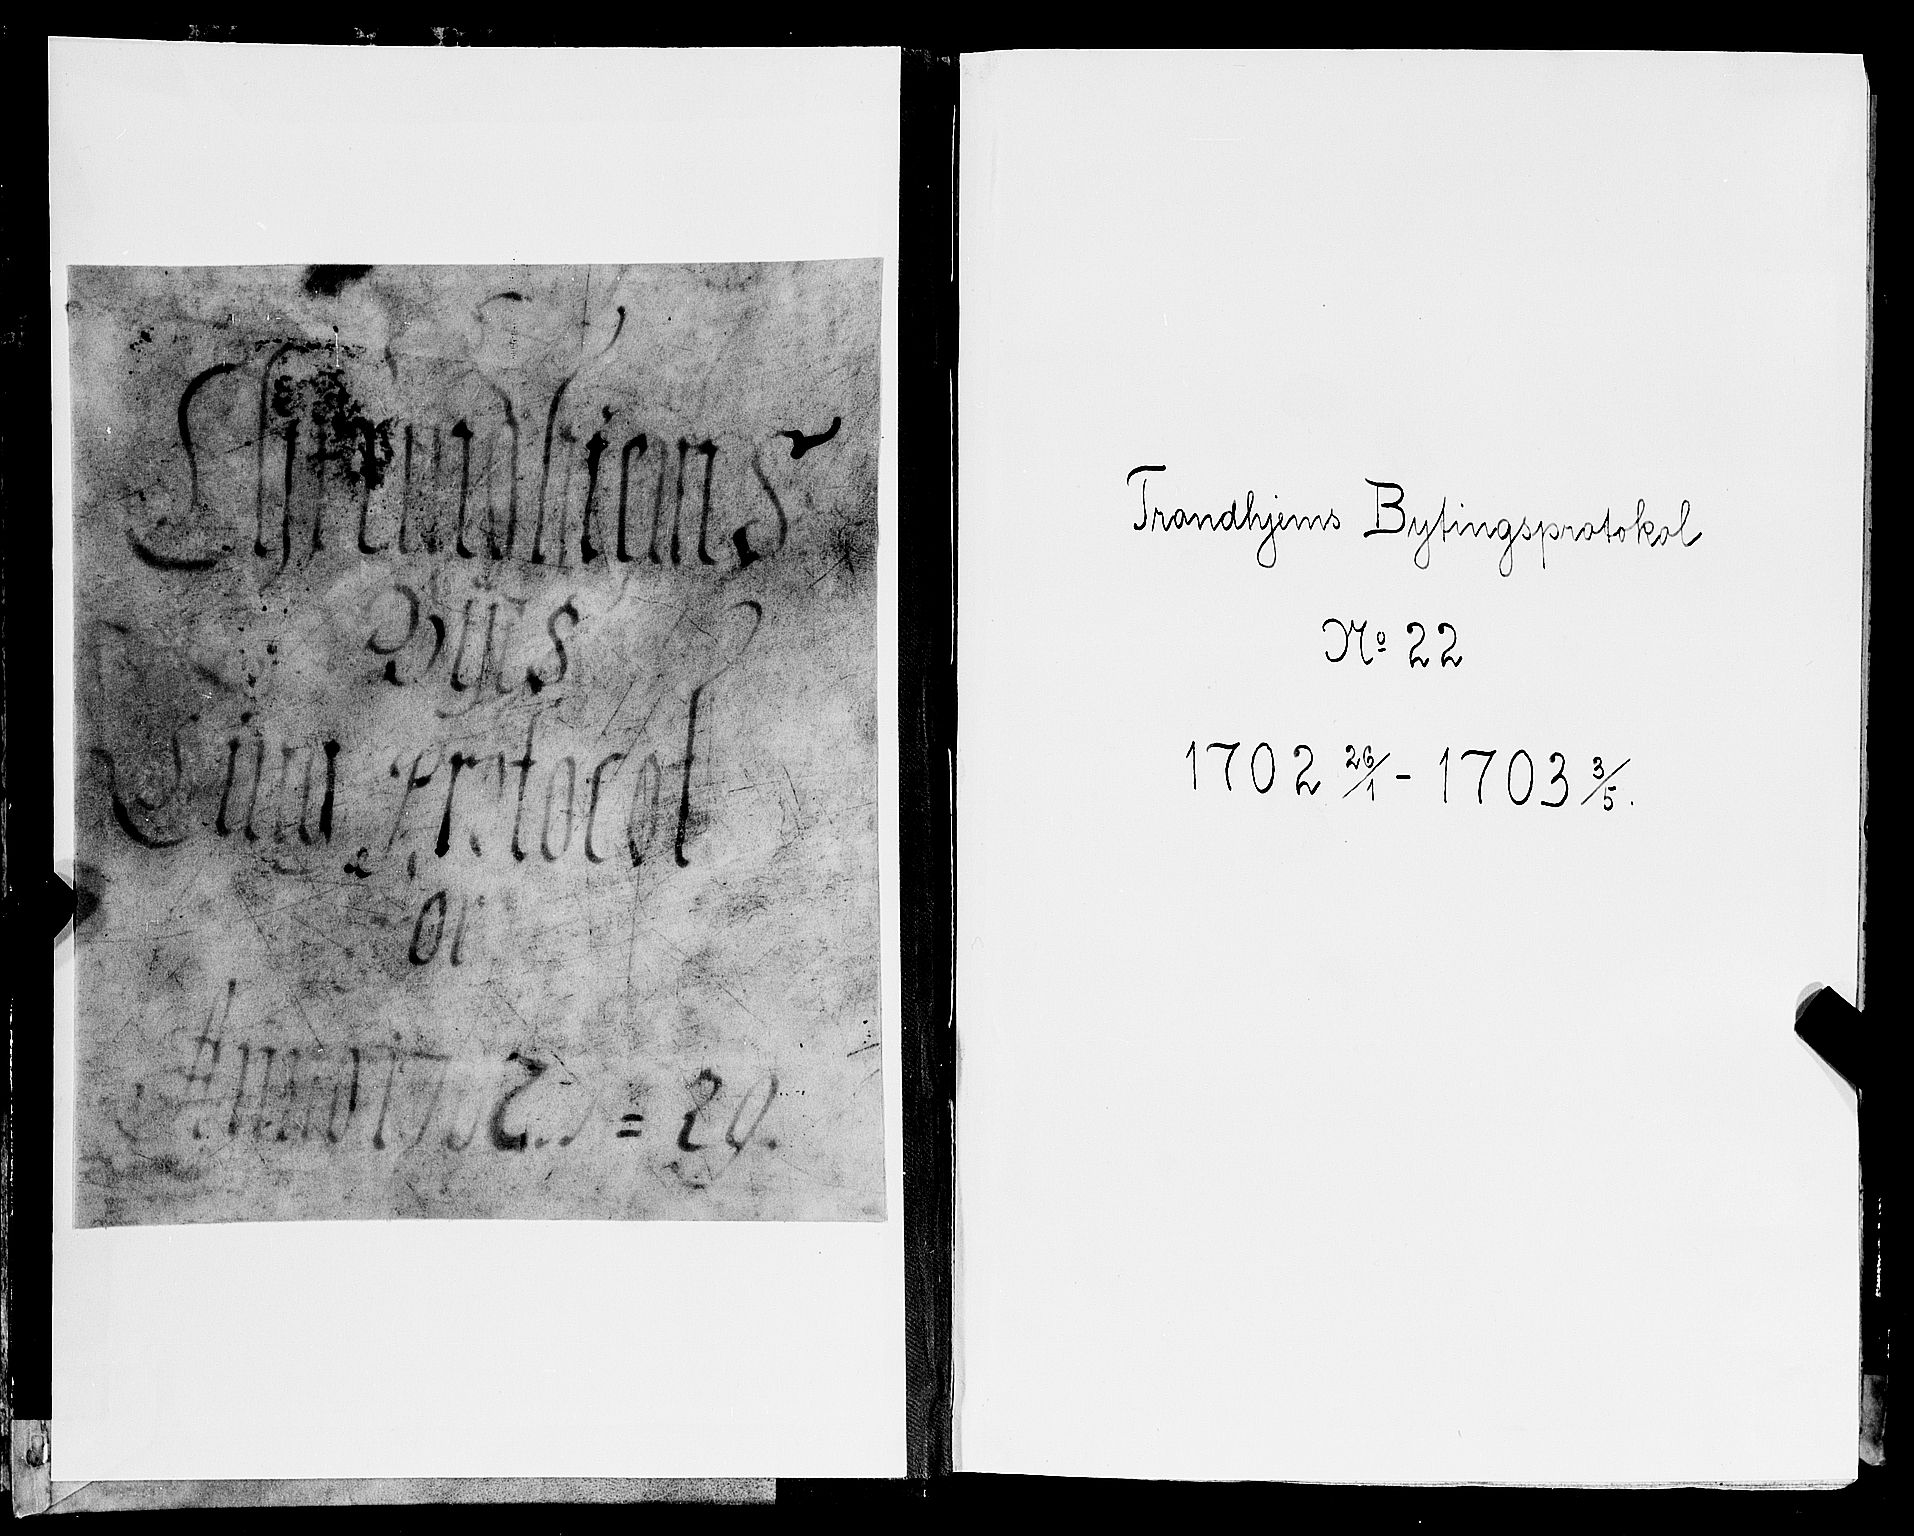 Thrundhiems
Byes
Ting Protocol
or
Anno 1702 = 20.
Trondhjems Bytingsprotokol
No 22
1702 26/1 - 1703 3/5.